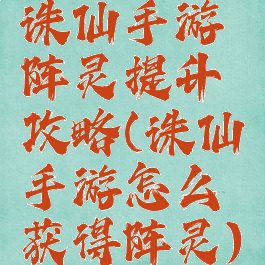 诛仙手游
阵灵提升
攻略(诛仙
手游怎么
获得阵灵)